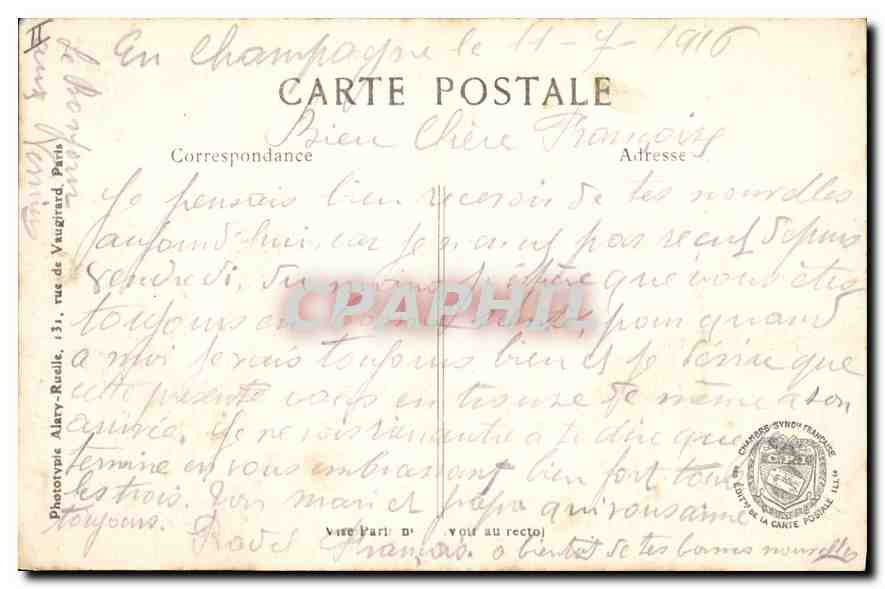 En Champagne le 11-7-1916
CARTE POSTALE
Bien Chère Françoise
Correspondance Adresse
Je pensais bien recevoir de tes nouvelles
aujourd'hui, car je n'ai pas depuis
vendredi. Du moins j'espère que vous êtes
toujours en santé, pour quand
a moi je vais toujours bien et je désire que
cette présente vous en trouve de même a son
arrivée. Je ne vois rien autre a te dire que
termine en vous embrassant bien fort tous
les trois. Ton mari et papa qui vous aime
toujours.
Visé Paris n° voir au recto
François a bientôt de tes bonnes nouvelles
II
Phototypie Alary-Ruelle, 131, rue de Vaugirard, Paris
CHAMBRE SYNDle FRANÇAISE
DE LA CARTE POSTALE ILLee
CPAPHIL